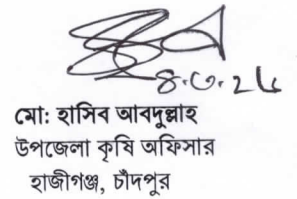 ৪.৩.২৬
মো: হাসিব আবদুল্লাহ
উপজেলা কৃষি অফিসার
হাজীগঞ্জ, চাঁদপুর